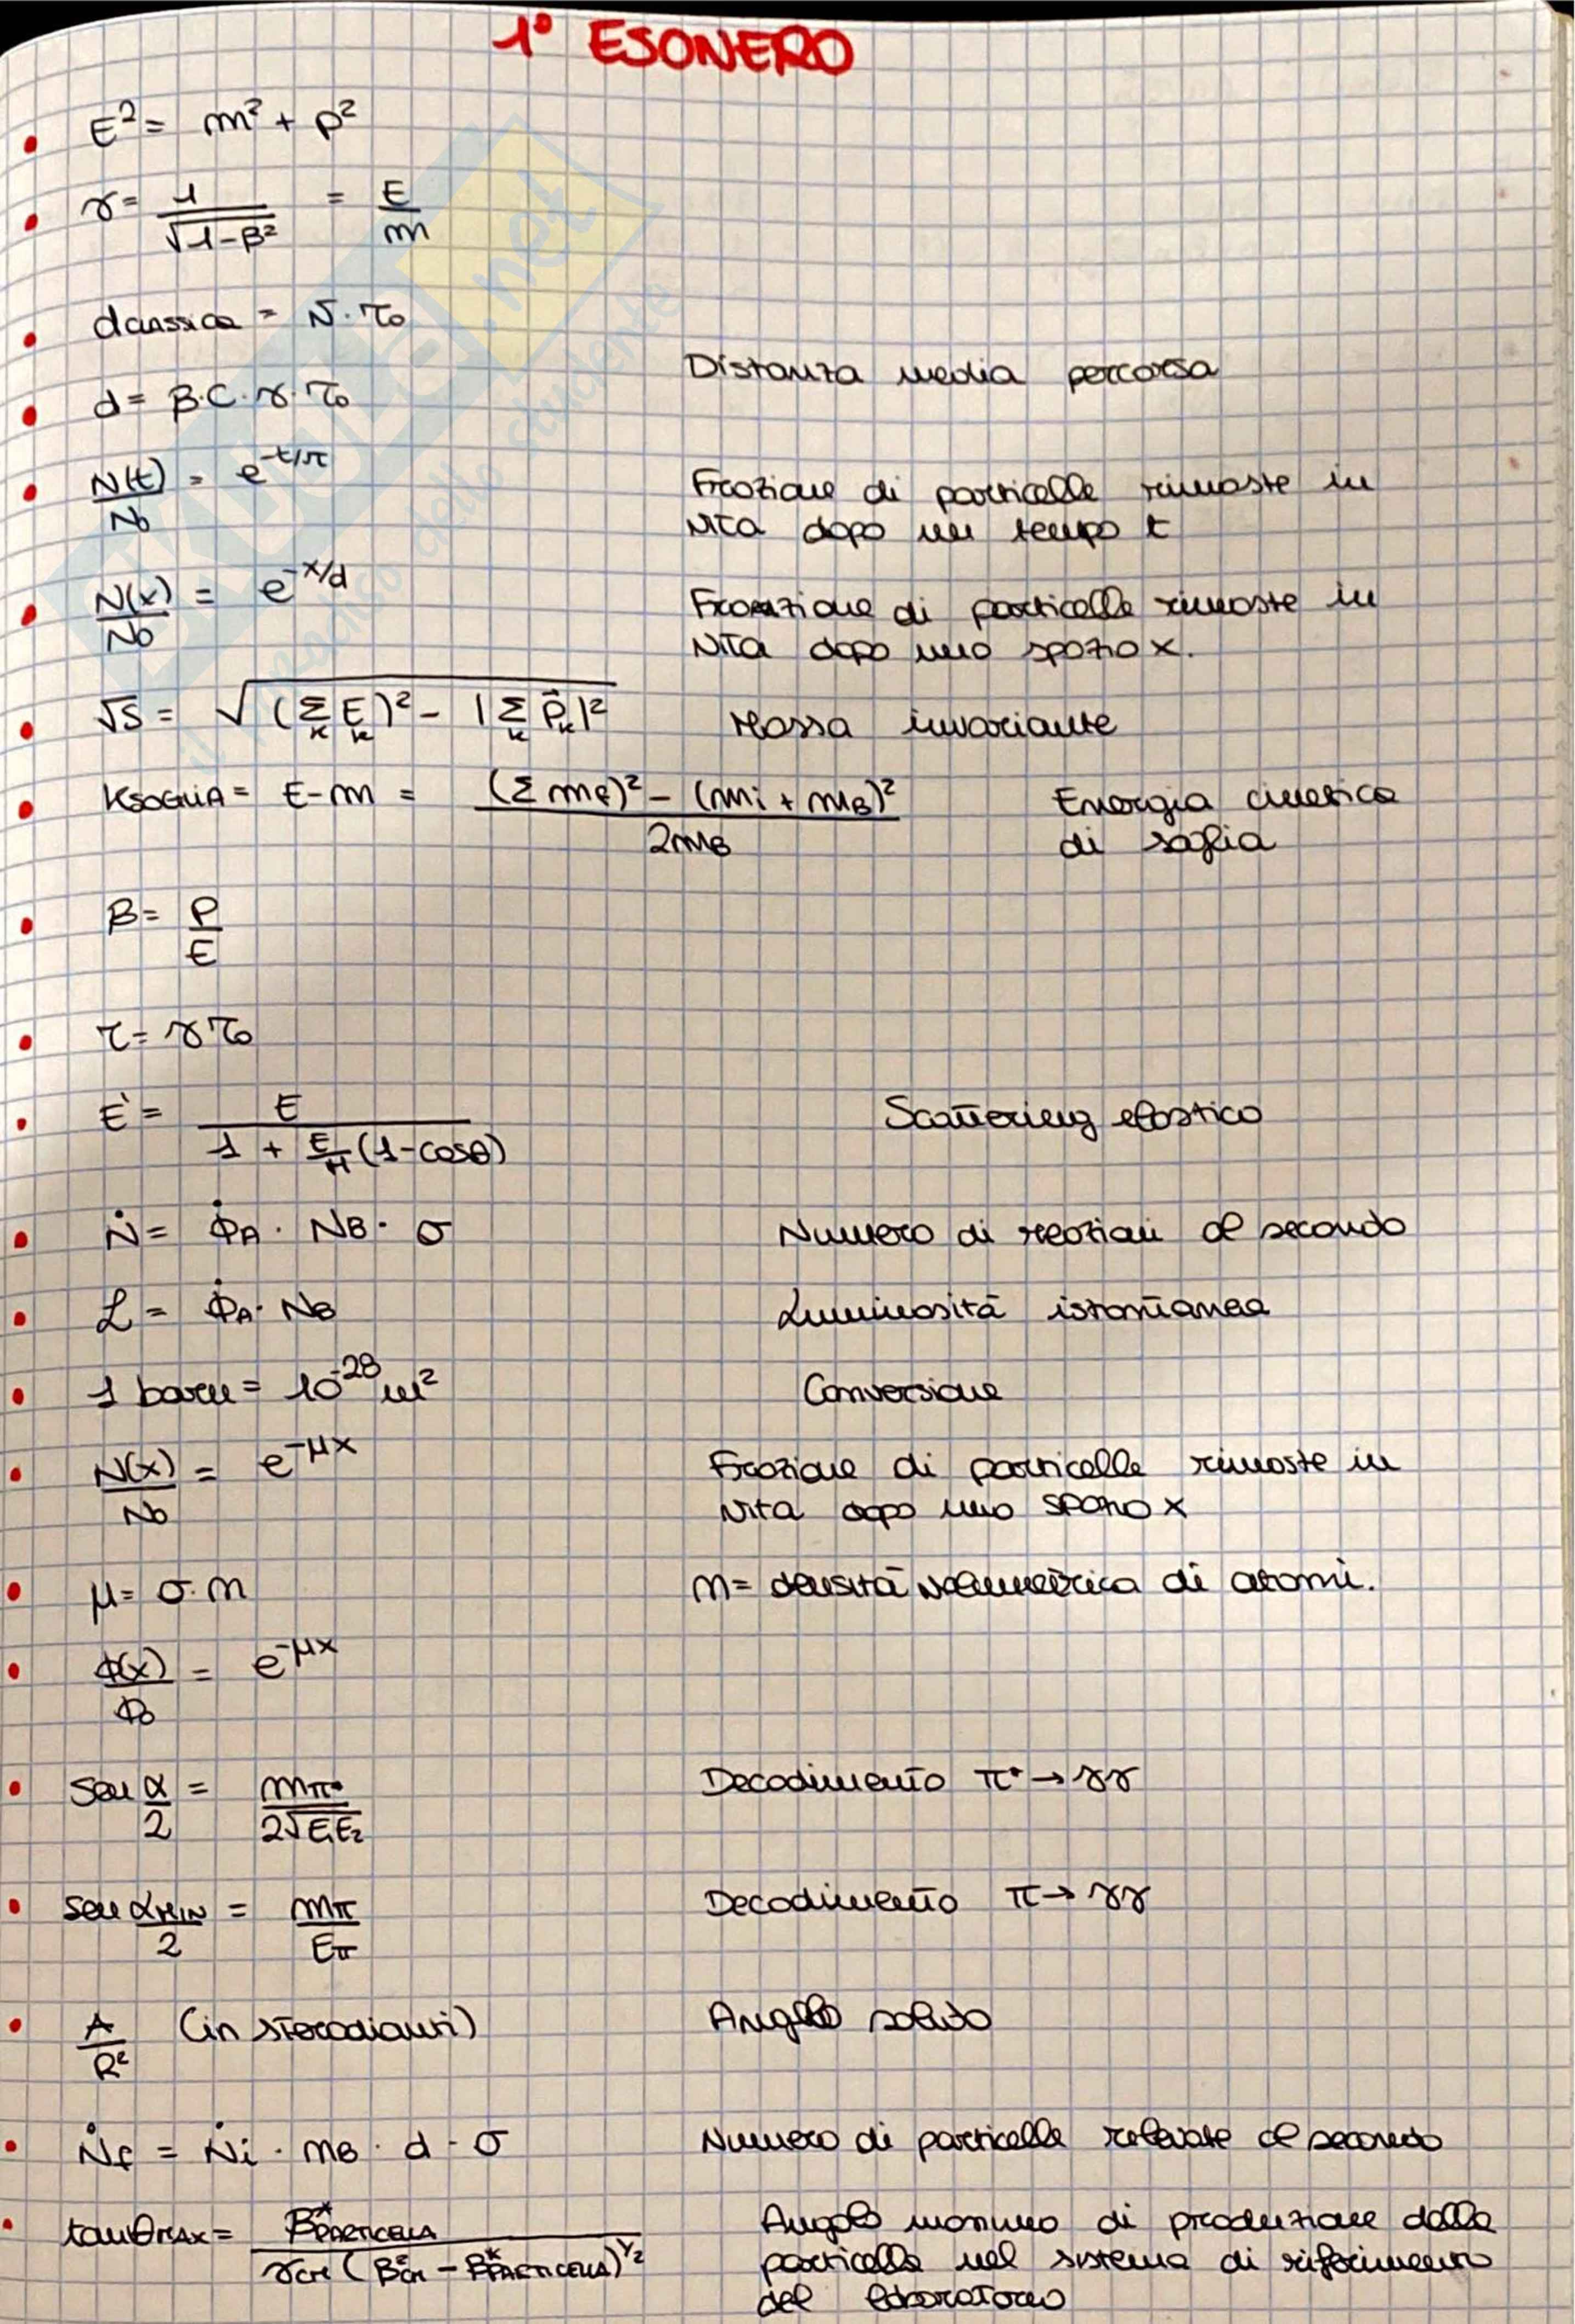 1° ESONERO
• E² = m² + p²
• γ = 1/√(1-β²) = E/m
• dclassica = v · τ₀
• d = β·c·γ·τ₀ Distanza media percorsa
• N(t)/N₀ = e^(-t/τ) Frazione di particelle rimaste in
vita dopo un tempo t
• N(x)/N₀ = e^(-x/d) Frazione di particelle rimaste in
vita dopo uno spazio x.
• √s = √((Σₖ Eₖ)² - |Σₖ p⃗ₖ|²) Massa invariante
• KSOGLIA = E-m = ((Σ mf)² - (mi + mB)²)/2mB Energia cinetica
di soglia
• β = P/E
• τ = γτ₀
• E' = E/(1 + E/M (1-cosθ)) Scattering elastico
• Ṅ = Φ̇A · NB · σ Numero di reazioni al secondo
• ℒ = Φ̇A · NB Luminosità istantanea
• 1 barn = 10⁻²⁸ m² Conversione
• N(x)/N₀ = e^(-μx) Frazione di particelle rimaste in
vita dopo uno spazio x
• μ = σ·n n = densità volumetrica di atomi.
• Φ(x)/Φ₀ = e^(-μx)
• sen α/2 = mπ⁰/2√(E₁E₂) Decadimento π⁰ → γγ
• sen αMIN/2 = mπ/Eπ Decadimento π → γγ
• A/R² (in steradianti) Angolo solido
• Ṅf = Ṅi · nB · d · σ Numero di particelle rilevate al secondo
• tanθMAX = β*PARTICELLA/(γCM (β²CM - β*PARTICELLA)^½) Angolo massimo di produzione della
particella nel sistema di riferimento
del laboratorio
il paradiso dello studente
.net